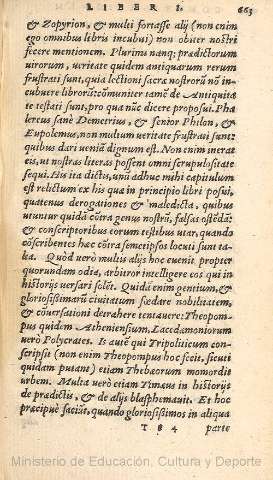 LIBER I.
663
& Zopyrion, & multi fortasse alij (non enim
ego omnibus libris incubui) non obiter nostri
fecere mentionem. Plurimi nanq; prædictorum
virorum, veritate quidem antiquarum rerum
frustrati sunt, quia lectioni sacra nostrorũ nõ in-
cubuere librorũ: cõmuniter tamẽ de Antiquita
te testati sunt, pro qua nũc dicere proposui. Pha
lereus sanè Demetrius, & senior Philon, &
Eupolemus, non multum veritate frustrati sunt:
quibus dari veniã dignum est. Non enim inerat
eis, ut nostras literas possent omni scrupulositate
sequi. His ita dictis, unũ adhuc mihi capitulum
est relictum ex his quæ in principio libri posui,
quatenus derogationes & maledicta, quibus
utuntur quidã cõtra genus nostrũ, falsas ostẽdã:
& conscriptoribus eorum testibus utar, quando
cõscribentes hæc cõtra semetipsos locuti sunt ta-
lia. Quòd verò multis alijs hoc euenit propter
quorundam odia, arbitror intelligere eos qui in
historijs versari solẽt. Quidã enim gentium, &
gloriosissimarũ ciuitatum fœdare nobilitatem,
& cõuersationi detrahere tentauere: Theopom-
pus quidem Atheniensium, Lacedæmoniorum
verò Polycrates. Is autẽ qui Tripoliticum con-
scripsit (non enim Theopompus hoc fecit, sicuti
quidam putant) etiam Thebæorum momordit
urbem. Multa verò etiam Timæus in historijs
de prædictis, & de alijs blasphemauit. Et hoc
præcipuè faciũt, quando gloriosissimos in aliqua
T t 4 parte
Ministerio de Educación, Cultura y Deporte